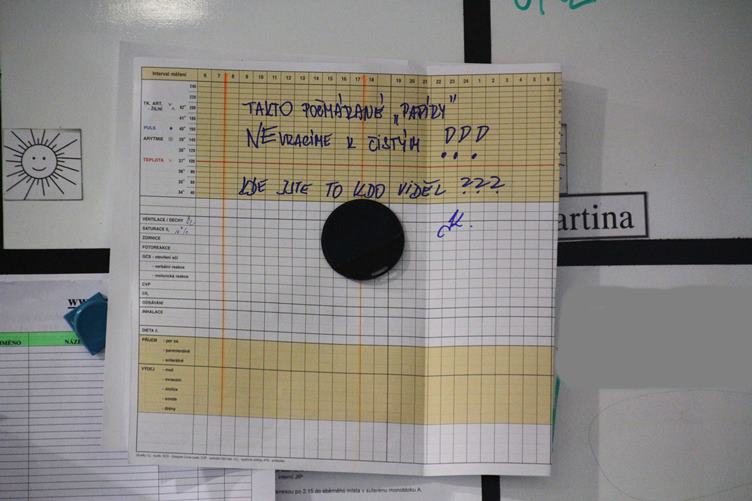 Interval měření 6 7 8 9 10 11 12 13 14 15 16 17 18 19 20 21 22 23 24 1 2 3 4 5 6
TAKTO POČMÁRANÉ „PAPÍRY"
NEVRACÍME K ČISTÝM !!!
KDE JSTE TO KDO VIDĚL ???
TK. ART.
- ŽILNÍ
PULS
ARYTMIE
TEPLOTA
VENTILACE / DECHY
SATURACE
ZORNICE
FOTOREAKCE
GCS - otevření očí
- verbální reakce
- motorická reakce
CVP
ODSÁVÁNÍ
INHALACE
DIETA č.
PŘÍJEM - per os
- parenterálně
- enterálně
VÝDEJ - moč
- zvracení
- stolice
- sonda
- drény
artina
www.
JMÉNO
NÁZE
interní JIP
enesou po 2.15 do sběrného místa v suterénu monobloku A.